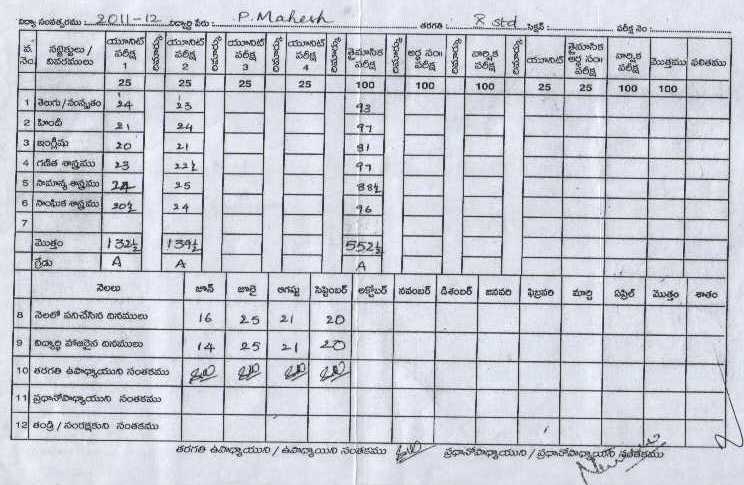 విద్యా సంవత్సరము : 2011-12 విద్యార్థి పేరు : P. Mahesh తరగతి : X std సెక్షన్ : పరీక్ష నెం :
వ. నెం. సబ్జెక్టులు / వివరములు యూనిట్ పరీక్ష 1 యూనిట్ పరీక్ష 2 యూనిట్ పరీక్ష 3 యూనిట్ పరీక్ష 4 త్రైమాసిక పరీక్ష అర్ధ సం॥ పరీక్ష వార్షిక పరీక్ష యూనిట్ త్రైమాసిక అర్ధ సం॥ పరీక్ష వార్షిక పరీక్ష మొత్తము ఫలితము
25 25 25 25 100 100 100 25 25 100 100
1 తెలుగు / సంస్కృతం 24 23 93
2 హిందీ 21 24 97
3 ఇంగ్లీషు 20 21 81
4 గణిత శాస్త్రము 23 22½ 97
5 సామాన్య శాస్త్రము 24 25 88½
6 సాంఘిక శాస్త్రము 20½ 24 96
7
మొత్తం 132½ 139½ 552½
గ్రేడు A A A
నెలలు జూన్ జూలై ఆగష్టు సెప్టెంబర్ అక్టోబర్ నవంబర్ డిశంబర్ జనవరి ఫిబ్రవరి మార్చి ఏప్రిల్ మొత్తం శాతం
8 నెలలో పనిచేసిన దినములు 16 25 21 20
9 విద్యార్థి హాజరైన దినములు 14 25 21 20
10 తరగతి ఉపాధ్యాయుని సంతకము
11 ప్రధానోపాధ్యాయుని సంతకము
12 తండ్రి / సంరక్షకుని సంతకము
తరగతి ఉపాధ్యాయుని / ఉపాధ్యాయిని సంతకము ప్రధానోపాధ్యాయుని / ప్రధానోపాధ్యాయిని సంతకము